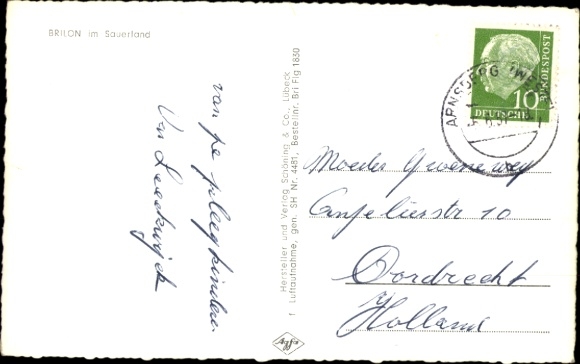 BRILON im Sauerland
van je pleegkinderen.
Van
Hersteller und Verlag Schöning & Co., Lübeck
† Luftaufnahme, gen. SH Nr. 4481, Bestellnr. Bri Flg 1830
Agfa
ARNSBERG (WESTF
10
DEUTSCHE
BUNDESPOST
Moeder Groeneweg
Anjelierstr 10
Dordrecht
Holland